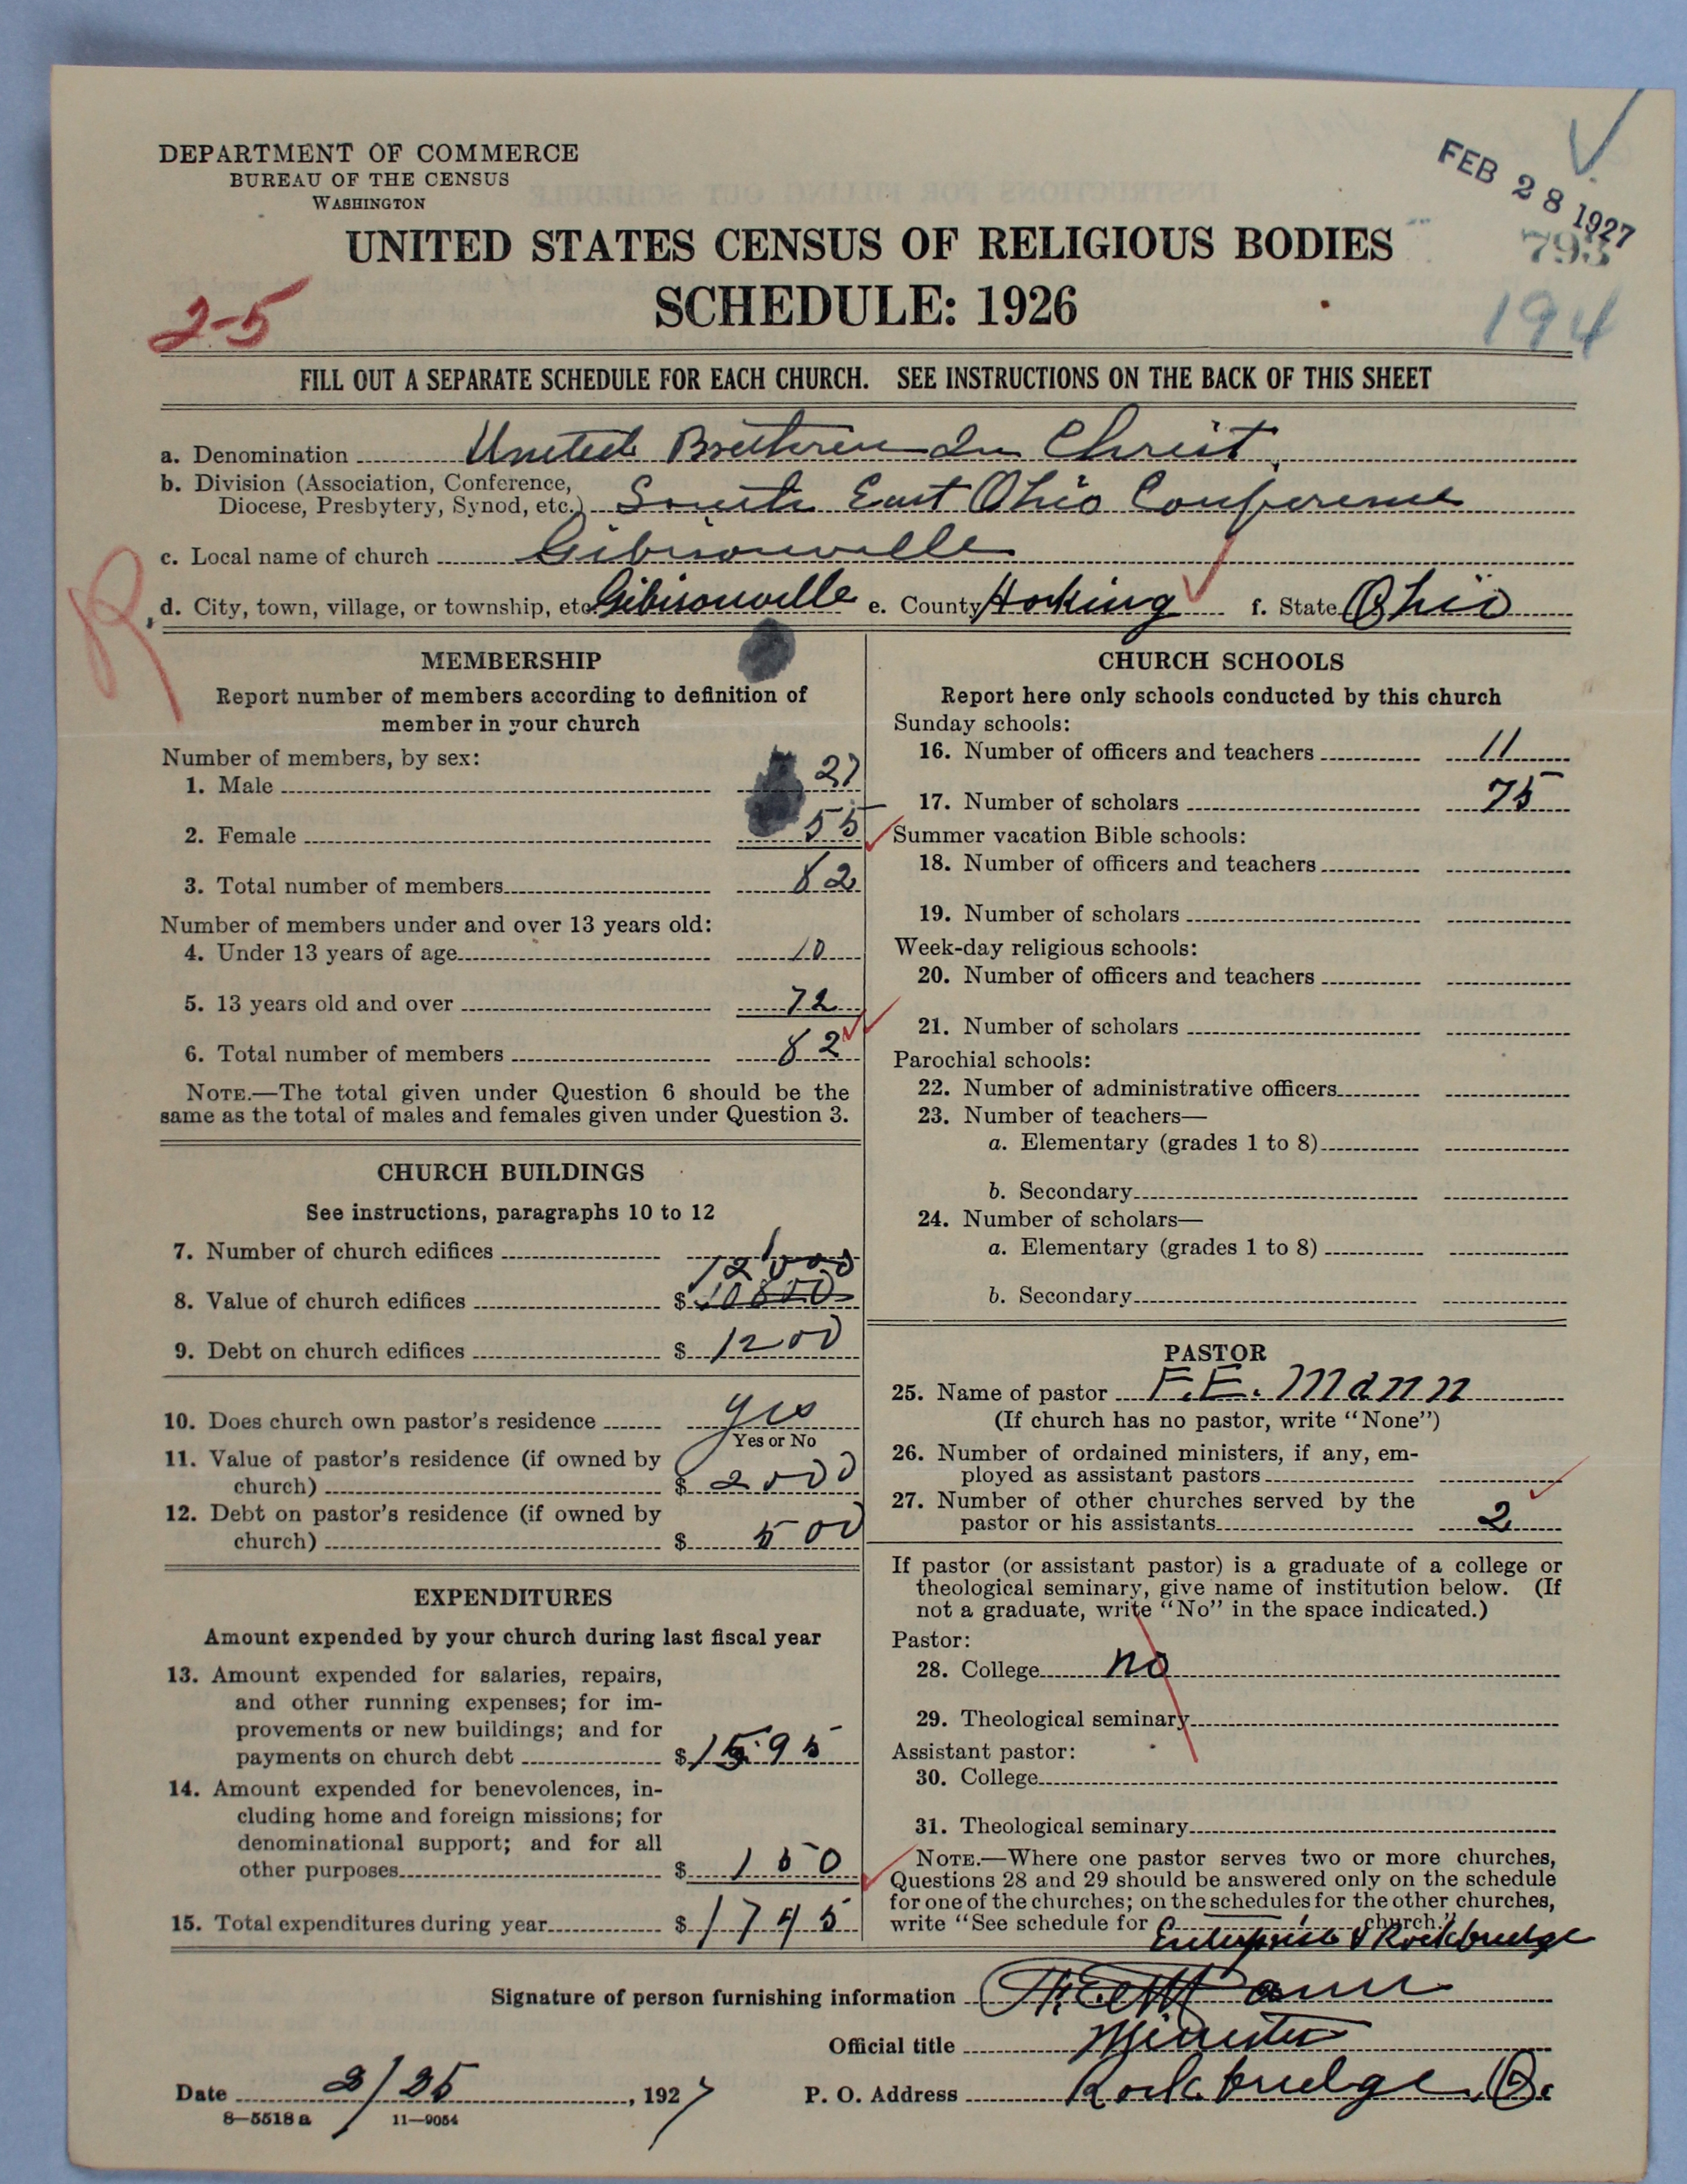 DEPARTMENT OF COMMERCE
BUREAU OF THE CENSUS
WASHINGTON
FEB 28 1927
793
UNITED STATES CENSUS OF RELIGIOUS BODIES
2-5
SCHEDULE: 1926
194
FILL OUT A SEPARATE SCHEDULE FOR EACH CHURCH. SEE INSTRUCTIONS ON THE BACK OF THIS SHEET
a. Denomination United Brethren In Christ
b. Division (Association, Conference,
Diocese, Presbytery, Synod, etc.) South East Ohio Conference
c. Local name of church Gibisonville
R
d. City, town, village, or township, etc. Gibisonville e. County Hocking f. State Ohio
MEMBERSHIP
Report number of members according to definition of
member in your church
Number of members, by sex:
1. Male 27
2. Female 55
3. Total number of members 82
Number of members under and over 13 years old:
4. Under 13 years of age 10
5. 13 years old and over 72
6. Total number of members 82
NOTE.—The total given under Question 6 should be the
same as the total of males and females given under Question 3.
CHURCH BUILDINGS
See instructions, paragraphs 10 to 12
7. Number of church edifices 1
12000
8. Value of church edifices $ 10800
9. Debt on church edifices $ 1200
10. Does church own pastor's residence yes
Yes or No
11. Value of pastor's residence (if owned by
church) $ 2000
12. Debt on pastor's residence (if owned by
church) $ 500
EXPENDITURES
Amount expended by your church during last fiscal year
13. Amount expended for salaries, repairs,
and other running expenses; for im-
provements or new buildings; and for
payments on church debt $ 1595
14. Amount expended for benevolences, in-
cluding home and foreign missions; for
denominational support; and for all
other purposes $ 150
15. Total expenditures during year $ 1745
CHURCH SCHOOLS
Report here only schools conducted by this church
Sunday schools:
16. Number of officers and teachers 11
17. Number of scholars 75
Summer vacation Bible schools:
18. Number of officers and teachers
19. Number of scholars
Week-day religious schools:
20. Number of officers and teachers
21. Number of scholars
Parochial schools:
22. Number of administrative officers
23. Number of teachers—
a. Elementary (grades 1 to 8)
b. Secondary
24. Number of scholars—
a. Elementary (grades 1 to 8)
b. Secondary
PASTOR
25. Name of pastor F. E. Mann
(If church has no pastor, write "None")
26. Number of ordained ministers, if any, em-
ployed as assistant pastors
27. Number of other churches served by the
pastor or his assistants 2
If pastor (or assistant pastor) is a graduate of a college or
theological seminary, give name of institution below. (If
not a graduate, write "No" in the space indicated.)
Pastor:
28. College no
29. Theological seminary
Assistant pastor:
30. College
31. Theological seminary
NOTE.—Where one pastor serves two or more churches,
Questions 28 and 29 should be answered only on the schedule
for one of the churches; on the schedules for the other churches,
write "See schedule for church."
Enterprise & Rockbridge
Signature of person furnishing information F. E. Mann
Official title Minister
Date 2/25, 1927 P. O. Address Rockbridge, O.
8—5518 a 11—9054